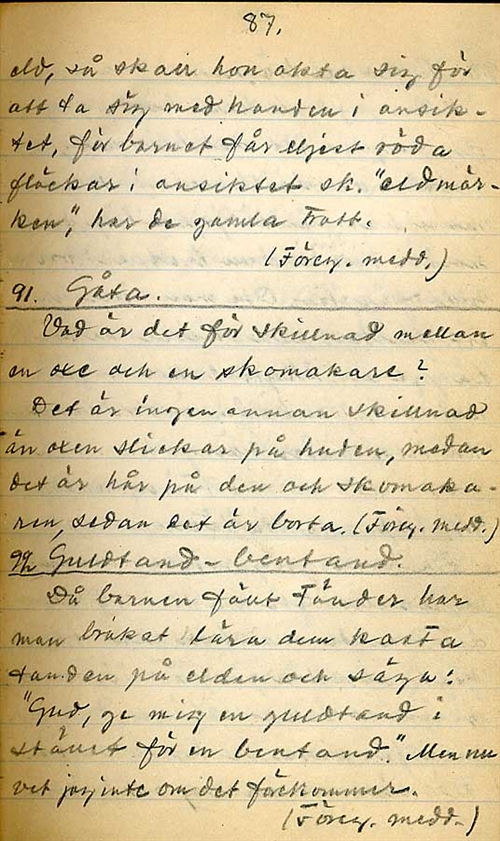 87.
eld, så skall hon akta sig för
att ta sig med handen i ansik-
tet, för barnet får eljest röda
fläckar i ansiktet sk. "eldmär-
ken", har de gamla trott.
(Föreg. medd.)
91. Gåta.
Vad är det för skillnad mellan
en oxe och en skomakare?
Det är ingen annan skillnad
än oxen slickar på huden, medan
det är hår på den och skomaka-
ren, sedan det är borta. (Föreg. medd.)
92. Guldtand - bentand.
Då barnen fällt tänder har
man brukat lära dem kasta
tanden på elden och säga:
"Gud, ge mig en guldtand i
stället för en bentand." Men nu
vet jag inte om det förekommer.
(Föreg. medd.)